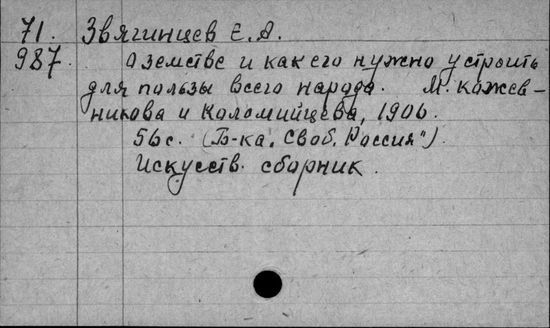 71. Звягинцев Е. А.
987. О земстве и как его нужно устроить
для пользы всего народа. М. Кожев-
никова и Коломийцева, 1906.
56с. (Б-ка „Своб. Россия")
Искусств. сборник.